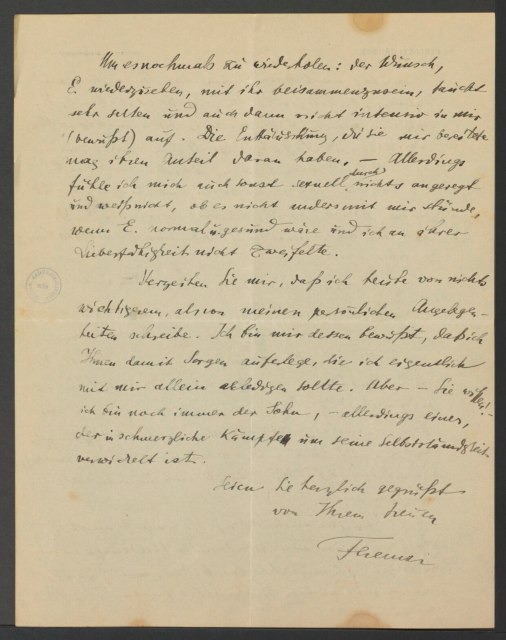 Um es nochmals zu wiederholen: der Wunsch,
E. wiederzusehen, mit ihr beisammenzusein, taucht
sehr selten und auch dann nicht intensiv in mir
(bewußt) auf. Die Enttäuschung, die sie mir bereitete
mag ihren Anteil daran haben. — Allerdings
fühle ich mich auch sonst sexuell durch nichts angeregt
und weiß nicht, ob es nicht anders mit mir stünde,
wenn E. normal u. gesund wäre und ich an ihrer
Liebesfähigkeit nicht zweifelte.
Verzeihen Sie mir, daß ich heute von nichts
wichtigerem, als von meinen persönlichen Angelegen-
heiten schreibe. Ich bin mir dessen bewußt, daß ich
Ihnen damit Sorgen auferlege, die ich eigentlich
mit mir allein erledigen sollte. Aber — Sie wissen! —
ich bin noch immer der Sohn, — allerdings einer,
der in schmerzliche Kämpfe um seine Selbstständigkeit
verwickelt ist.
Seien Sie herzlich gegrüßt
von Ihrem treuen
Ferenczi